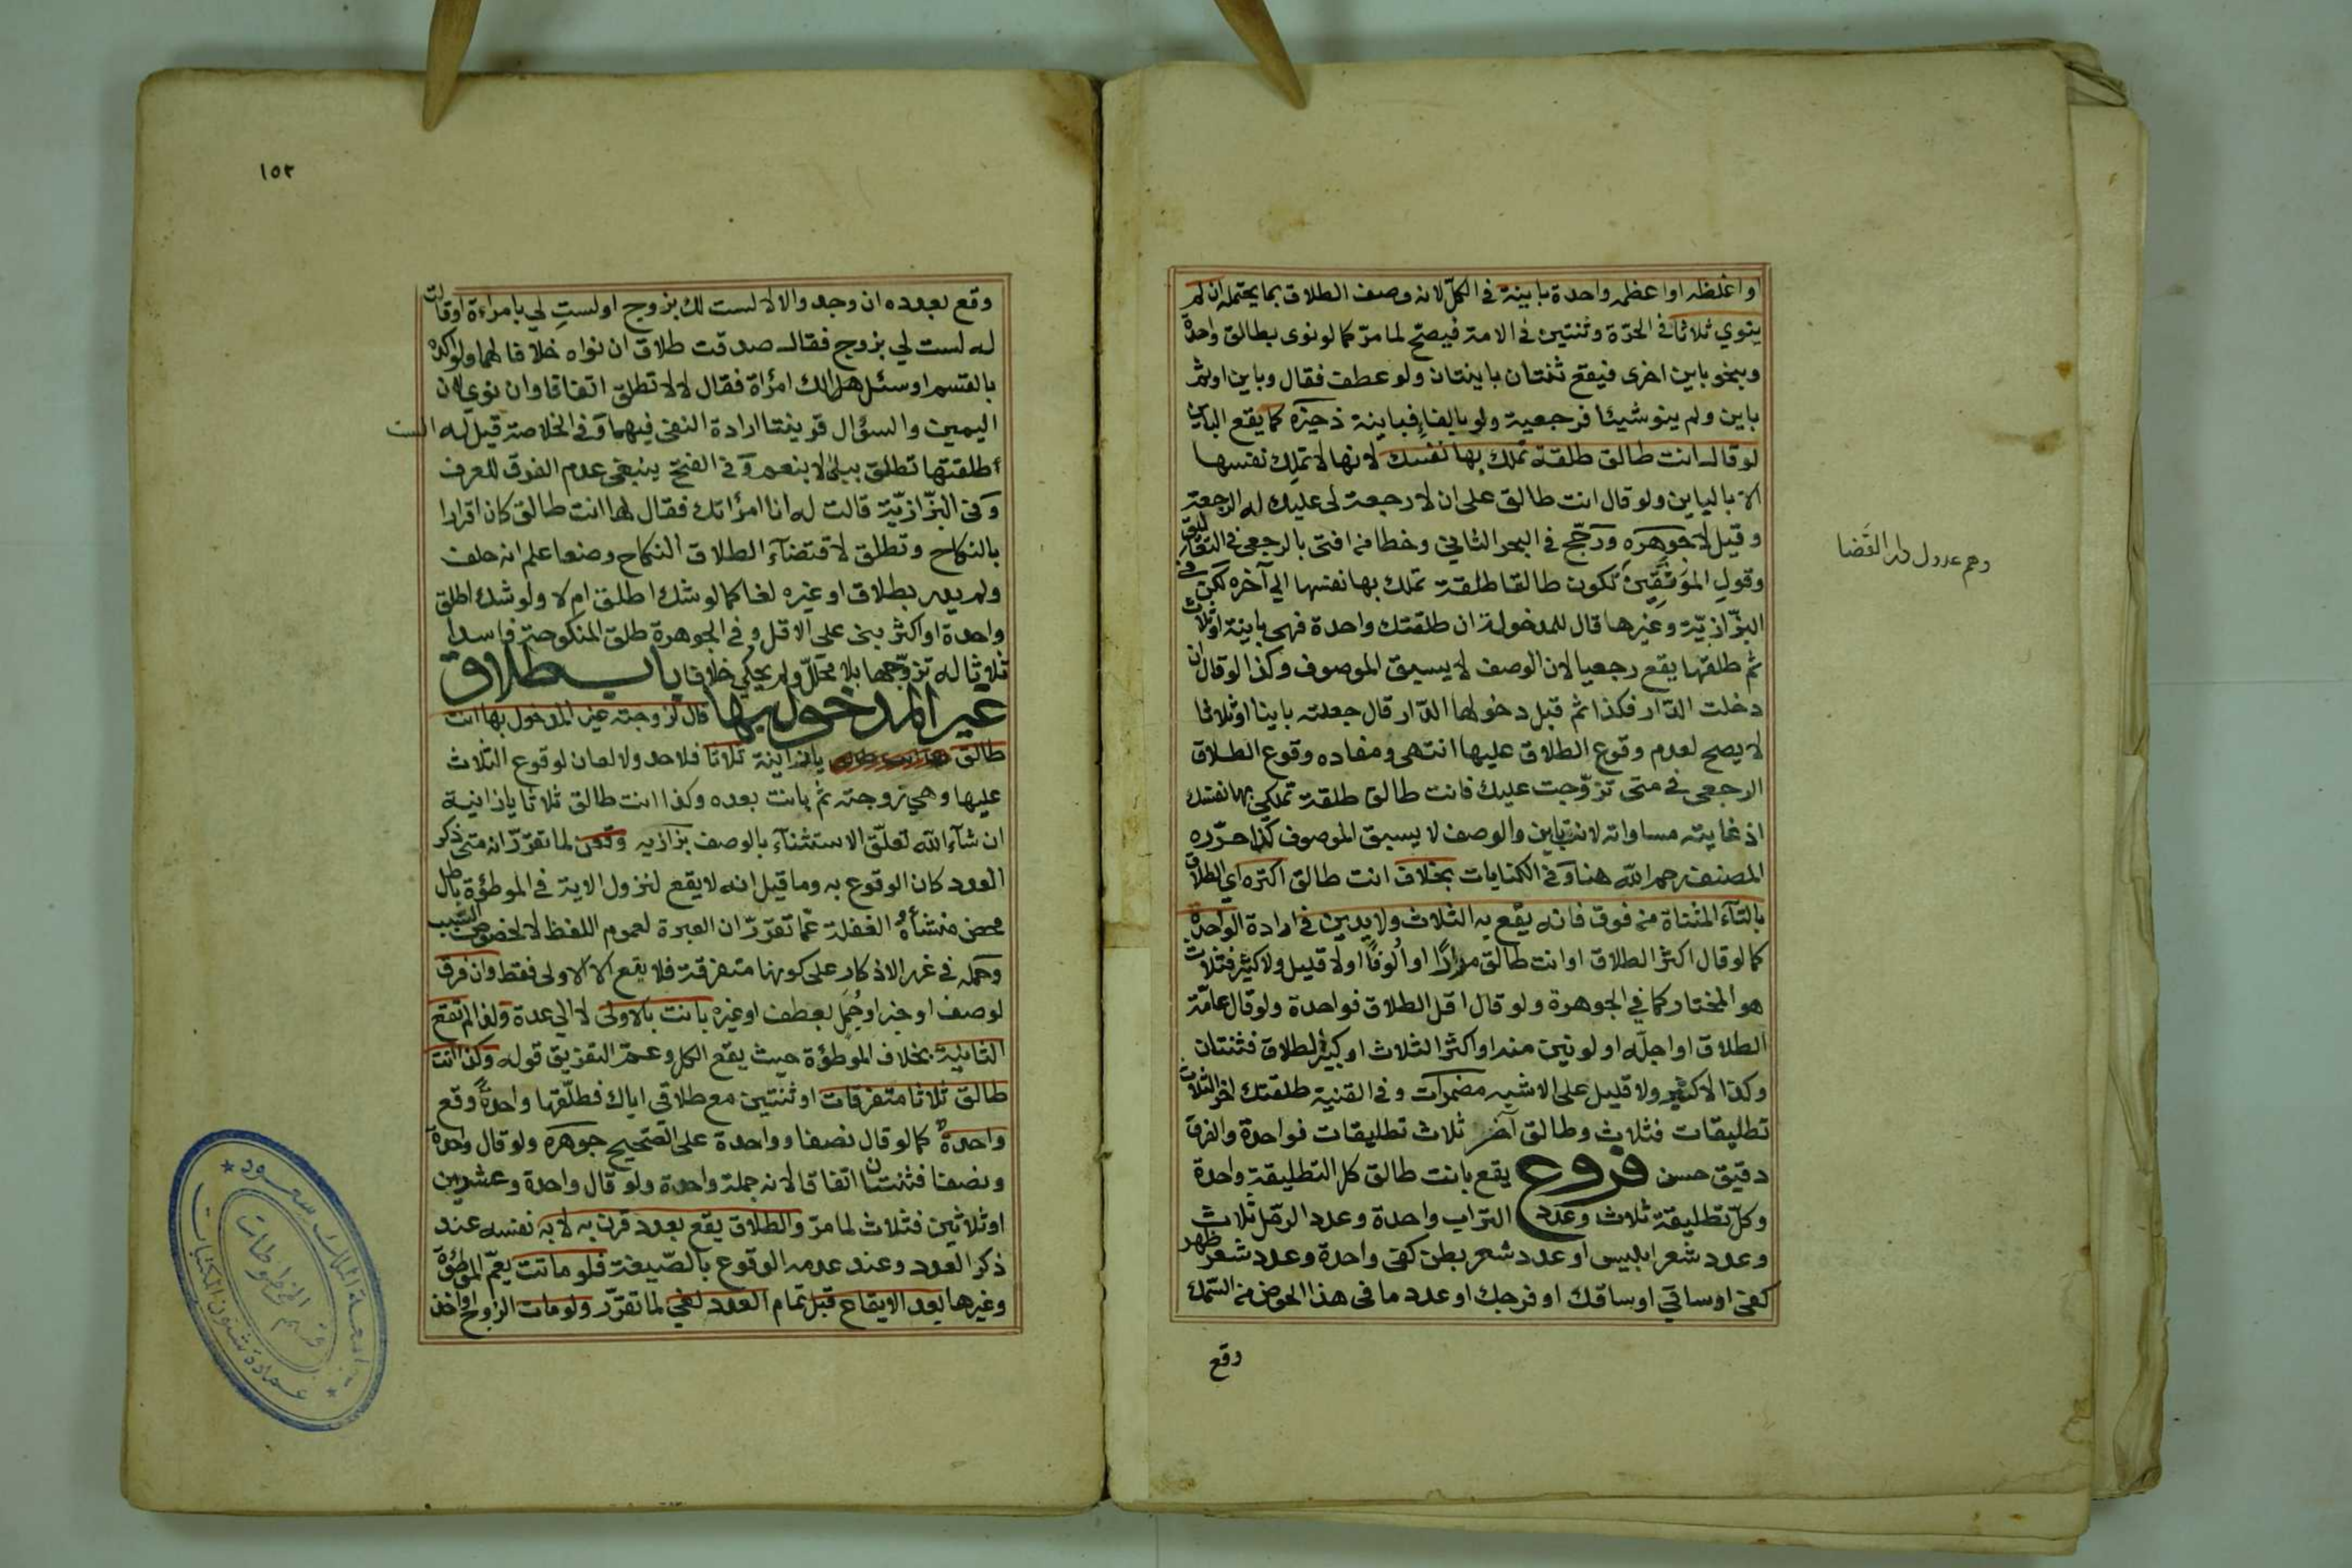 واغلظه او اعظمه واحدة باينة في الكلّ لانه وصف الطلاق بما يحتمله ان لم
ينوي ثلاثا في الحرّة وثنتين في الامة فيصحّ لما مرّ كما لو نوى بطالق واحدة
وبنحو باين اخرى فيقع ثنتان باينتان ولو عطف فقال وباين او ثم
باين ولم ينو شيئا فرجعية ولو بالفاء فباينة ذخيره كما يقع الباين
لو قال انت طالق طلقة تملك بها نفسك لانها لا تملك نفسها
الا بالباين ولو قال انت طالق على ان لا رجعة لى عليك له الرجعة
وقيل لا جوهره ورجّح في البحر الثاني وخطا من افتى بالرجعي في التعاليق
وقول الموثقين تكون طالقا طلقة تملك بها نفسها الي آخره لكن في
البزّازيّة وغيرها قال للمدخولة ان طلقتك واحدة فهي باينة او ثلاث
ثم طلقها يقع رجعيا لان الوصف لا يسبق الموصوف وكذا لو قال ان
دخلت الدّار فكذا ثم قبل دخولها الدّار قال جعلته باينا او ثلاثا
لا يصح لعدم وقوع الطلاق عليها انتهى ومفاده وقوع الطلاق
الرجعي في متى تزوّجت عليك فانت طالق طلقة تملكي بها نفسك
اذ غايته مساواته لانت باين والوصف لا يسبق الموصوف كذا حرّره
المصنف رحمه الله هنا وفي الكنايات بخلاف انت طالق اكتره اي الطلاق
بالتاء المثناة من فوق فانه يقع به الثلاث ولا يدين في ارادة الواحدة
كما لو قال اكثر الطلاق او انت طالق مرارًا او ألوفًا او لا قليل ولا كثير فثلاث
هو المختار كما في الجوهرة ولو قال اقل الطلاق فواحدة ولو قال عامّة
الطلاق او اجلّه او لونين منه او اكثر الثلاث او كبير الطلاق فثنتان
وكذا لا كثير ولا قليل على الاشبه مضمرات وفي القنية طلقتك اخر الثلاث
تطليقات فثلاث وطالق آخر ثلاث تطليقات فواحدة والفرق
دقيق حسن فروع يقع بانت طالق كل التطليقة واحدة
وكلّ تطليقة ثلاث وعدد التراب واحدة وعدد الرمل ثلاث
وعدد شعر ابليس او عدد شعر بطن كفي واحدة وعدد شعر ظهر
كفي او ساقي او ساقك او فرجك او عدد ما في هذا الحوض من السّمك
وقع
وهم عدول دار القضا
١٥٢
وقع بعدده ان وجد والا لا لست لك بزوج او لستِ لي بامراءة او قالت
له لست لي بزوج فقال صدقت طلاق ان نواه خلافا لهما ولو اكده
بالقسم او سئل هل الك امرأة فقال لا لا تطلق اتفاقا وان نوى لان
اليمين والسؤال قرينتا ارادة النفى فيهما وفي الخلاصة قيل له الست
طلقتها تطلق ببلى لا بنعم وفي الفتح ينبغى عدم الفرق للعرف
وفى البزّازيّة قالت له انا امرأتك فقال لها انت طالق كان اقرارا
بالنكاح وتطلق لاقتضاء الطلاق النكاح وضعا علم انه حلف
ولم يدر بطلاق او غيره لغا كما لو شك اطلق ام لا ولو شك اطلق
واحدة او اكثر بنى على الاقل وفي الجوهرة طلق المنكوحة فاسدا
ثلاثا له تزوّجها بلا محلّل ولم يحكي خلافا باب طلاق
غير المدخول بها قال لزوجته غير المدخول بها انت
طالق يا زانية ثلاثا فلا حد ولا لعان لوقوع الثلاث
عليها وهي زوجته ثم بانت بعده وكذا انت طالق ثلاثا يا زانية
ان شاء الله تعلّق الاستثناء بالوصف بزازيه وقعن لما تقرّر انه متى ذكر
العدد كان الوقوع به وما قيل انه لا يقع لنزول الاية في الموطؤة باطل
محض منشأه الغفلة عمّا تقرّر ان العبرة لعموم اللفظ لا لخصوص السّبب
وحمله في غرر الاذكار على كونها متفرقة فلا يقع الا الاولى فقط وان فرق
لوصف او خبر او جُمل بعطف او غيره بانت بالاولى لا الي عدة ولذا لم تقع
الثانية بخلاف الموطؤة حيث يقع الكل وعمّ التفريق قوله وكذا انت
طالق ثلاثا متفرقات او ثنتين مع طلاقي اياك فطلّقها واحدةً وقع
واحدة كما لو قال نصفا وواحدة على الصّحيح جوهره ولو قال واحدة
ونصفا فثنتان اتفاقا لانه جملة واحدة ولو قال واحدة وعشرين
او ثلاثين فثلاث لما مرّ والطلاق يقع بعدد قرن به لا به نفسه عند
ذكر العدد وعند عدمه الوقوع بالصّيغة فلو ماتت يعمّ الموطؤة
وغيرها بعد الايقاع قبل تمام العدد لغي لما تقرّر ولو مات الزوج او اخذ
جامعة الملك سعود
قسم المخطوطات
عمادة شئون المكتبات